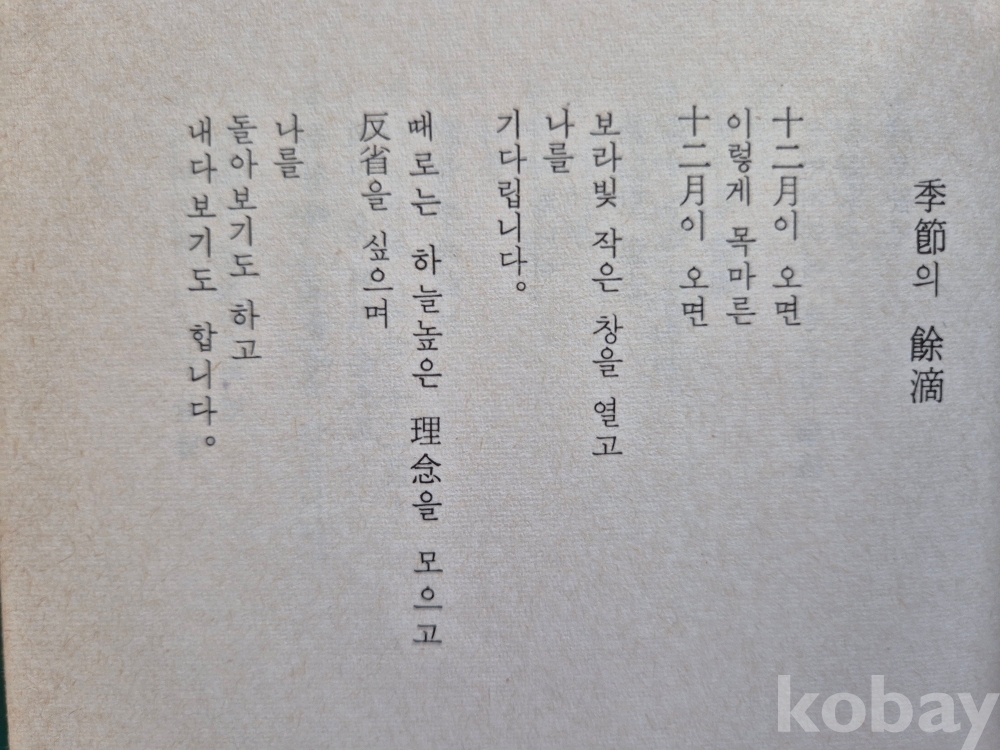 季節의 餘滴
十二月이 오면
이렇게 목마른
十二月이 오면
보라빛 작은 창을 열고
나를
기다립니다。
때로는 하늘높은 理念을 모으고
反省을 싶으며
나를
돌아보기도 하고
내다보기도 합니다。
kobay